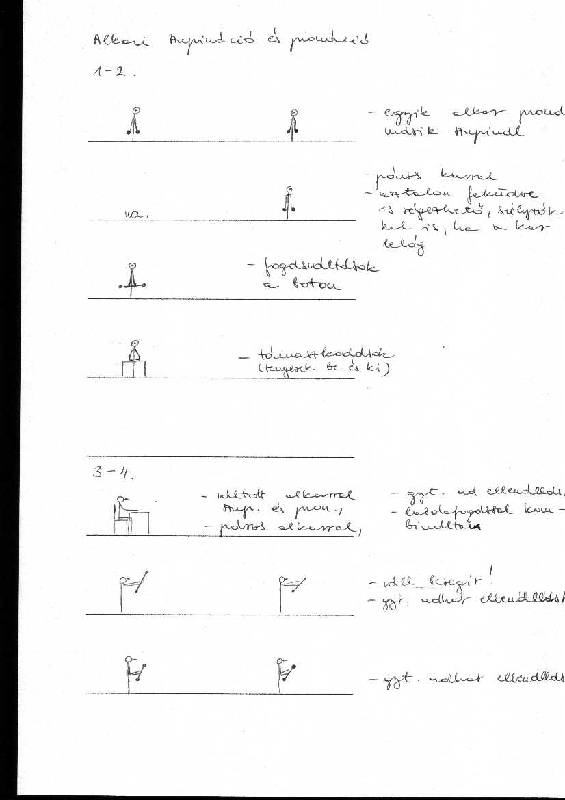 Alkari supináció és pronáció
1-2.
- egyik alkar pronál
másik supinál
- páros karral
- asztalon fekúdve
is végezhető, súlyzók-
kal is, ha a kar
lelóg
ua.
- fogásváltások
a boton
- támaszkodások
(tenyerek be és ki)
3-4.
- alkarral
sup. és pron.,
- páros alkarral,
- gyt. ad ellenállást,
- kom-
bináltan
- váll segít!
- gyt. adhat ellenállást
- gyt. adhat ellenállást